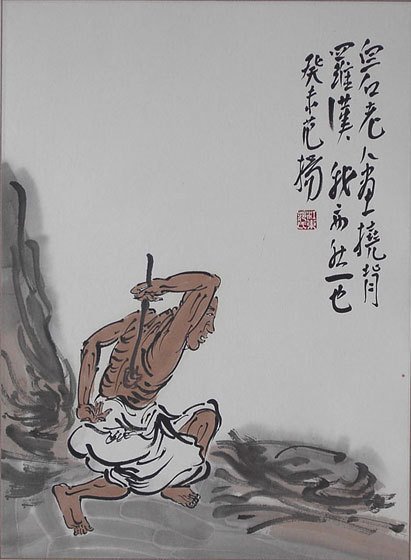 白石老人画撓背
羅漢我亦一也
癸未范揚